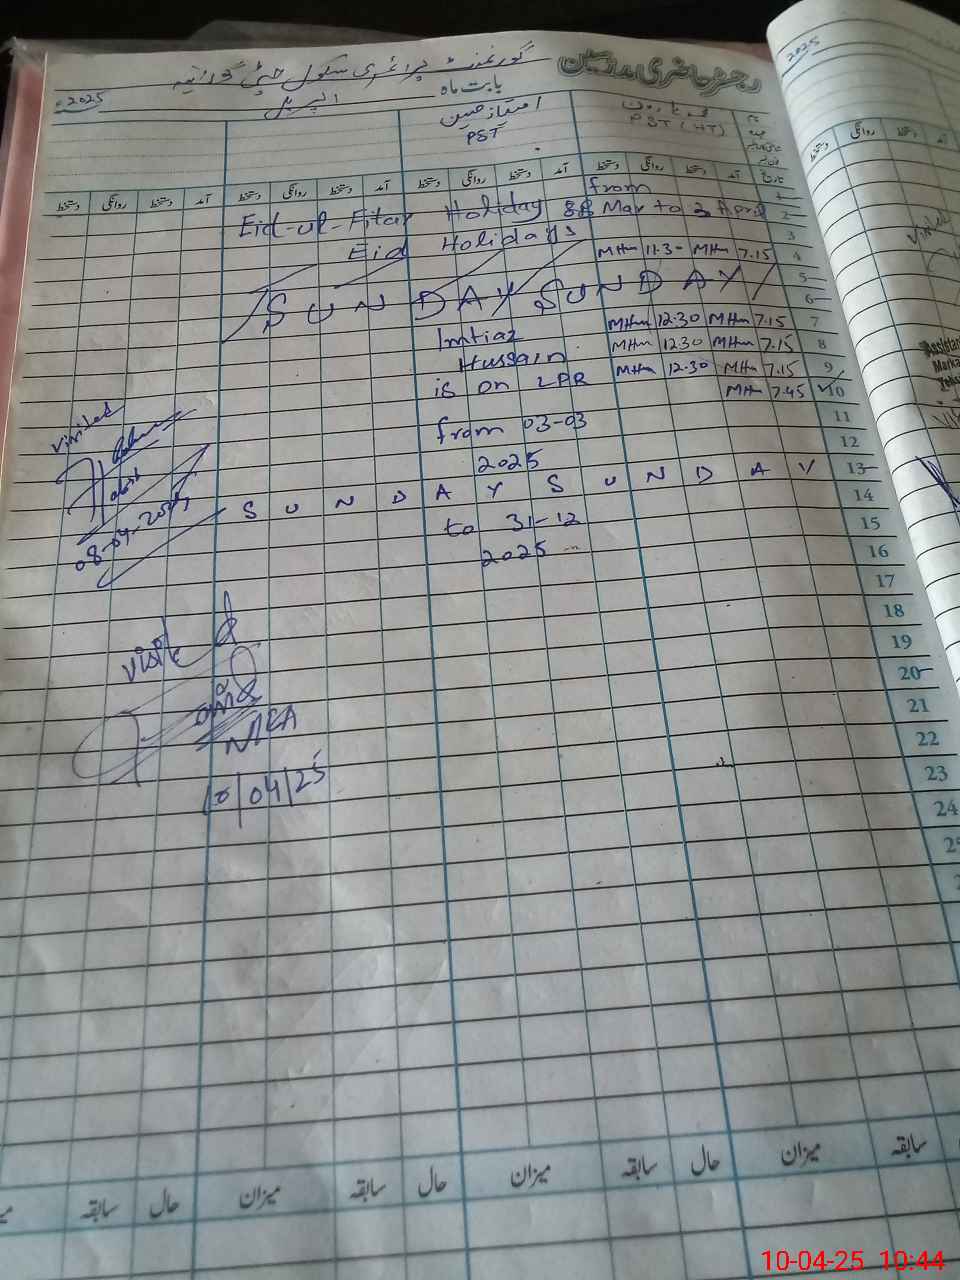 رجسٹر حاضری مدرسین
گورنمنٹ پرائمری سکول
بابت ماہ اپریل 2025ء
2025
امتیاز حسین
PST
PST (HT)
تاریخ
آمد دستخط روانگی دستخط آمد دستخط روانگی دستخط آمد دستخط روانگی دستخط آمد دستخط روانگی دستخط
روانگی دستخط
1 from
2 Eid-ul-Fitar Holiday Mar to 3 April
3 Eid Holidays
4 7.15 MHm 11.3- MHm
5
6 SUNDAY SUNDAY
7 7.15 MHm 12.30 MHm
8 7.15 MHm 12.30 MHm
9 7.15 MHm 12.30 MHm
10 7.45 MHm
11
12
13 SUNDAY SUNDAY
14
15
16
17
18
19
20
21
22
23
24
Imtiaz
Hussain
is on LPR
from 03-03
2025
to 31-12
2025
visited
08-04-2025
visited
10/04/25
سابقہ میزان حال سابقہ میزان حال سابقہ میزان حال سابقہ
10-04-25 10:44